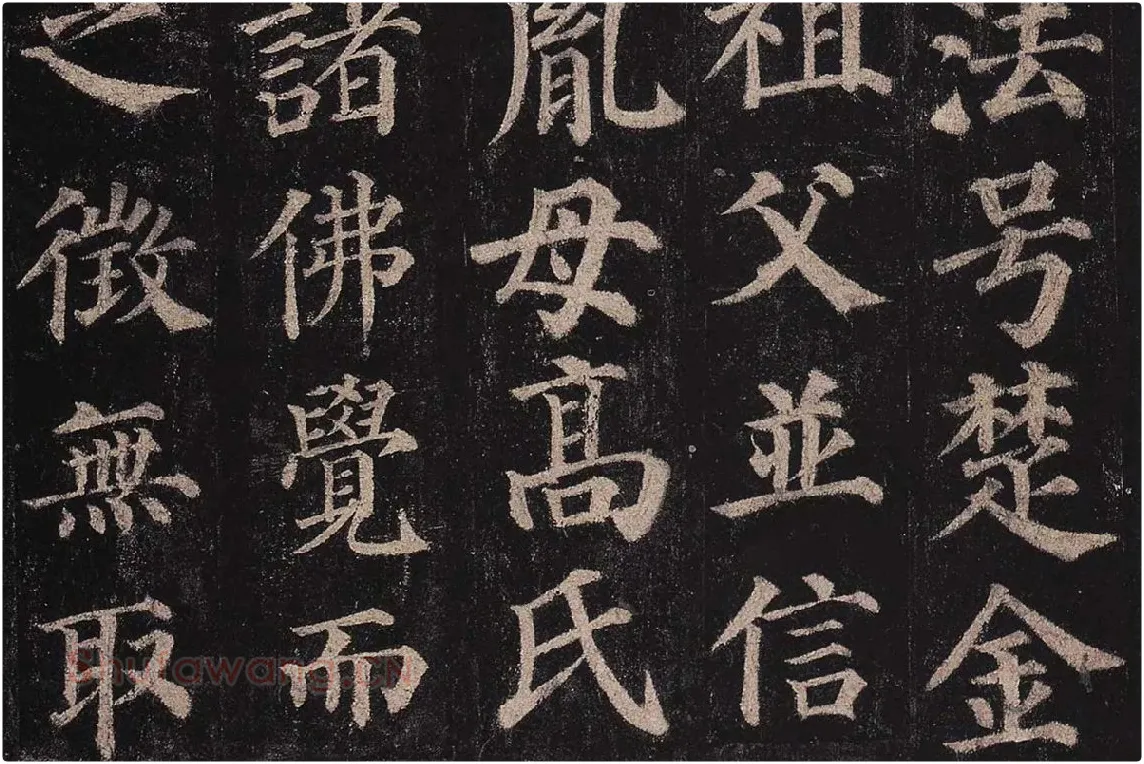 法号楚金
祖父並信
胤母高氏
諸佛覺而
之徵無取
Shufawang.CN